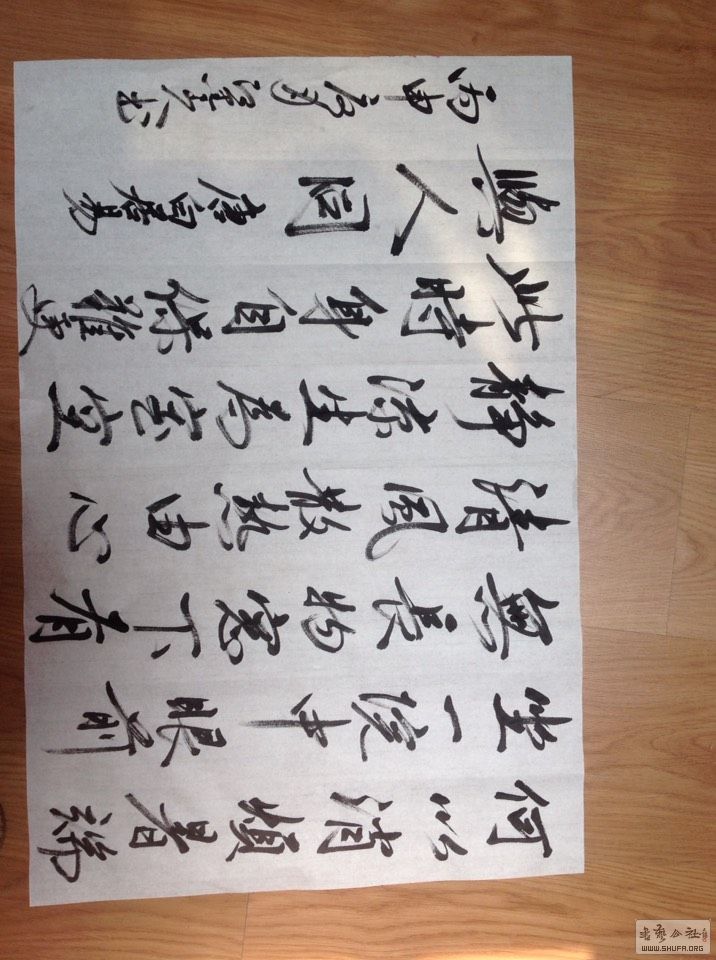 何以消煩暑端
坐一院中眼前
無長物窓下有
清風散熱由心
靜涼生為室空
此時身自保難更
與人同 唐白居易
丙申夏 书
書藝公社
WWW.SHUFA.ORG